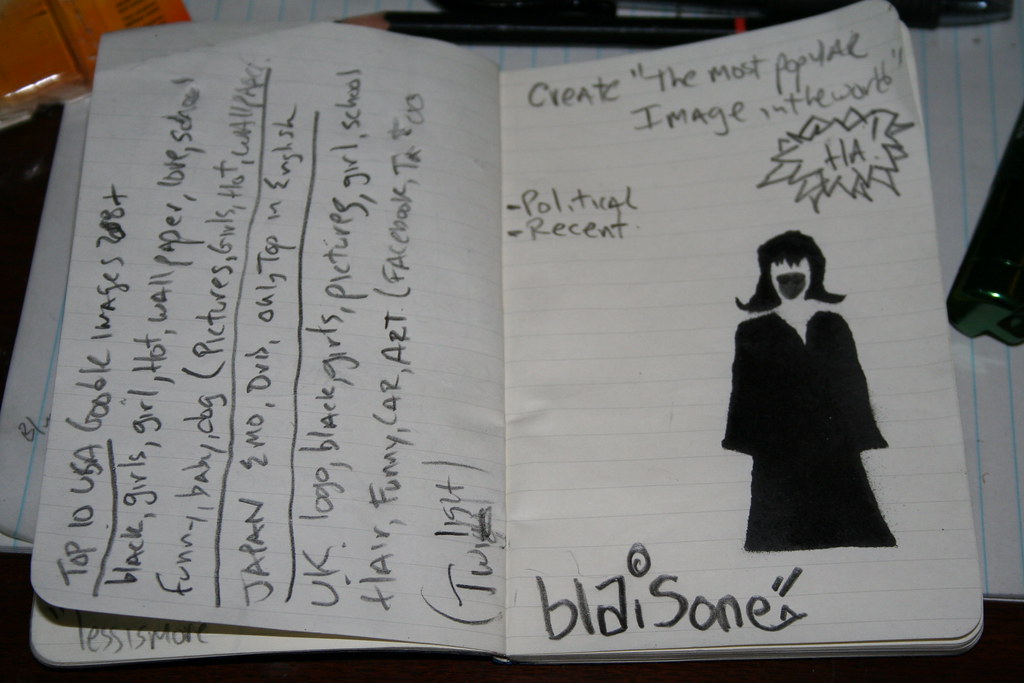 TOP 10 USA Google images 2008+
black, girls, girl, Hot, wallpaper, love, school
Funny, baby, dog (Pictures, Girls, Hot, wallpaper.
JAPAN EMO, DVD, only Top in English
UK. logo, black, girls, pictures, girl, school
Hair, Funny, CAR, ART (FACEBOOK, TATToos
(Twilight)
lessismore
Create "The most popular
Image in the world"
HA.
- Political
- Recent.
blaisone